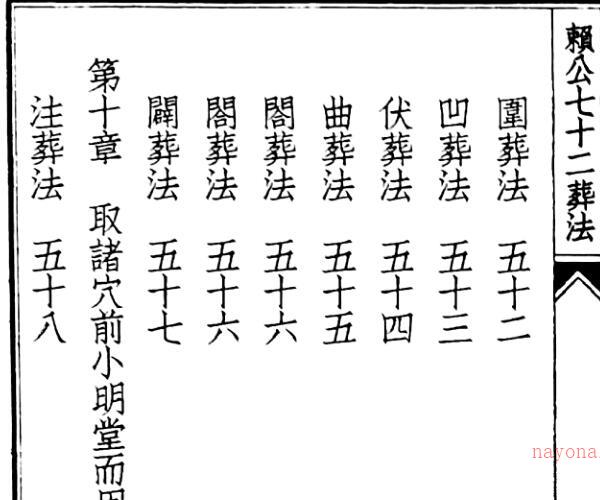 賴公七十二葬法
圍葬法 五十二
凹葬法 五十三
伏葬法 五十四
曲葬法 五十五
閤葬法 五十六
閤葬法 五十六
闢葬法 五十七
第十章 取諸穴前小明堂而
注葬法 五十八
nayona.